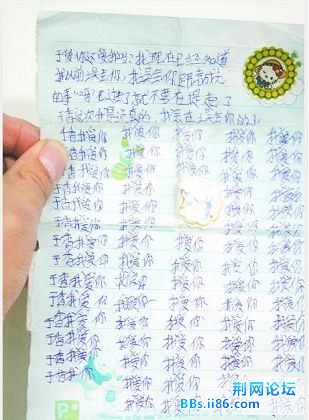 于香你还爱我吗？我现在已经知道
我以前误会你，我
的事 过去了就不要在提起了
于香这次我是认真的，我会在 误会你的了
于香我爱你 我爱你 我爱你 我爱你 我爱你
于香我爱你 我爱你 我爱你 我爱你 我爱你
于香我爱你 我爱你 我爱你 我爱你
于香我爱你 我爱你 我爱你 我爱你
于香我爱你 我爱你 我爱你 我爱你
于香我爱你 我爱你 我爱你 我爱你
于香我爱你 我爱你 我爱你 我爱你 我爱你
于香我爱你 我爱你 我爱你 我爱你 我爱你
于香我爱你 我爱你 我爱你 我爱你 我爱你
于香我爱你 我爱你 我爱你 我爱你 我爱你
于香我爱你 我爱你 我爱你 我爱你 我爱你
于香我爱你 我爱你 我爱你 我爱你 我爱你
于香我爱你 我爱你 我爱你 我爱你 我爱你
于香我爱你 我爱你 我爱你 我爱你
荆网论坛
BBs.ii86.com